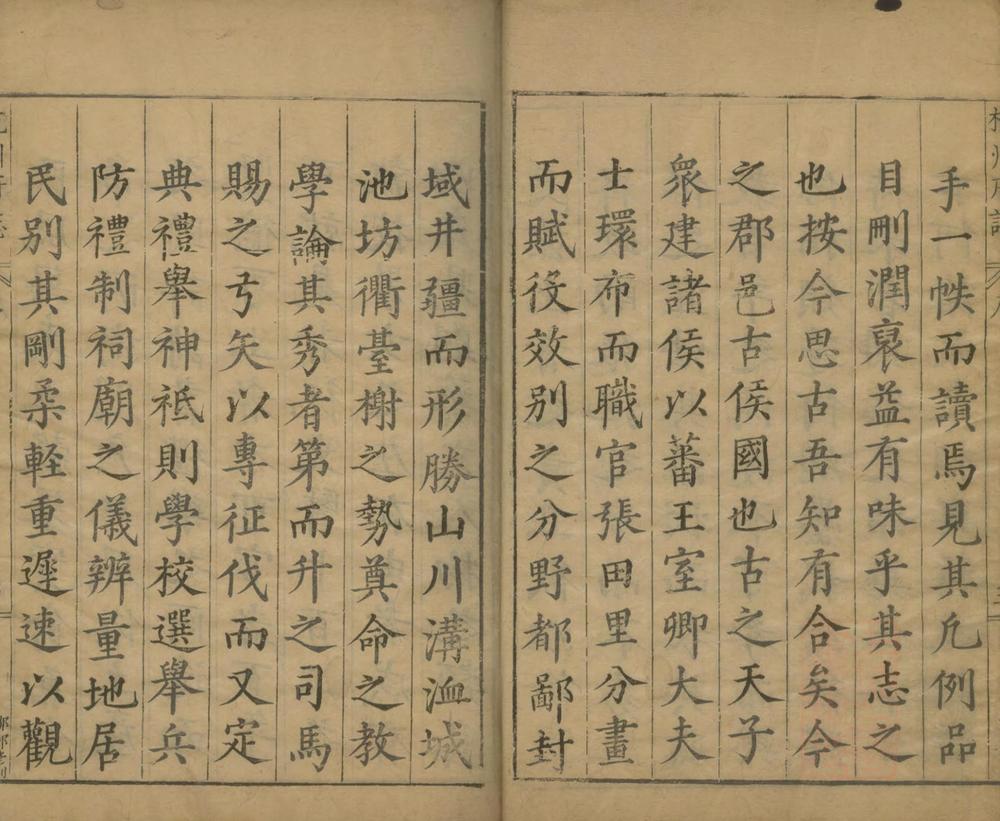 手一帙而讀焉見其凢例品
目刪潤裒益有味乎其志之
也按今思古吾知有合矣今
之郡邑古侯國也古之天子
衆建諸侯以蕃王室卿大夫
士環布而職官張田里分畫
而賦役效别之分野都鄙封
域井疆而形勝山川溝洫城
池坊衢臺榭之勢奠命之教
學論其秀者第而升之司馬
賜之弓矢以專征伐而又定
典禮舉神祇則學校選舉兵
防禮制祠廟之儀辨量地居
民别其剛柔軽重遲速以觀